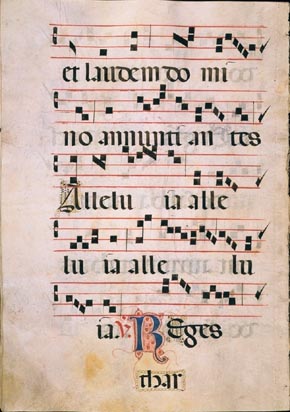 et laudem do mi
no annunti an tes
Allelu ia alle
lu ia alle lu
ia. V. Reges
thar